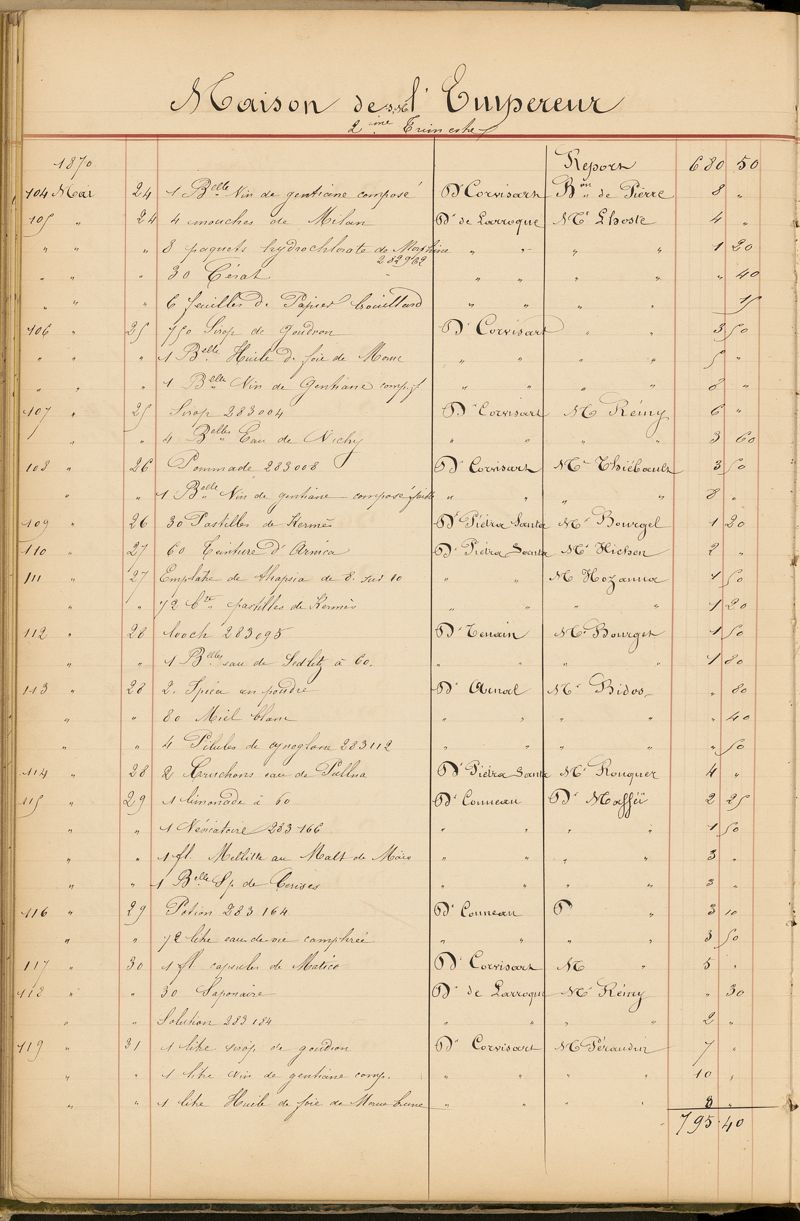 Maison de S.M. l'Empereur
2ème Trimestre
1870 Report 680 50
104 Mai 24 1 Belle Vin de gentiane composé Dr Corvisart Bon de Pierre 8 "
105 " 24 4 mouches de Milan Dr de Larroque Mr Lhoste 4 "
" " " 8 paquets hydrochlorate de Morphine 282982 " " " " 1 20
" " " 30 Cérat " " " " " 40
" " " 6 feuilles de Papier " " " " 15
106 " 25 750 Sirop de goudron Dr Corvisart " " 3 50
" " " 1 Belle Huile de foie de Morue " " " " 5 "
" " " 1 Belle Vin de Gentiane comp " " " " 8 "
107 " 25 Sirop 283004 Dr Corvisart Mr Rémy 6 "
" " 4 Belles Eau de Vichy " " " " 3 60
108 " 26 Pommade 283008 Dr Corvisart Mr Thiébault 3 50
" " 1 Belle Vin de gentiane composé " " " " 8 "
109 " 26 30 Pastilles de Kermès Dr Piétra Santa Mr Bourgel 1 20
110 " 27 60 Teinture d'Arnica Dr Piétra Santa Mr 2 "
111 " 27 Emplâtre de thapsia de 8 sur 10 " " M Hozanna 1 50
" " 1/2 bte pastilles de Kermès " " " " 1 20
112 " 28 looch 283095 Dr Tenain Mr Bourget 1 50
" " 1 Belle eau de Sedlitz à 60. " " " " 1 80
113 " 28 2. Ipéca en poudre Dr Arnal Mr Bidos " 80
" " 80 Miel blanc " " " " " 40
" " 4 Pilules de cynoglosse 283112 " " " " " 50
114 " 28 2 Cruchons eau de Pullna Dr Piétra Santa Mr Rouquer 4 "
115 " 29 1 limonade à 60 Dr Conneau Dr Mafféï 2 25
" " 1 Vésicatoire 283166 " " " " 1 50
" " 1 fl. Mellitte au Malt de Maïs " " " " 3 "
" " 1 Belle Sp. de Cerises " " " " 3 "
116 " 29 Potion 283164 Dr Conneau D " 3 10
" " 1/2 litre eau-de-vie camphrée " " " " 3 50
117 " 30 1 fl capsules de Matico Dr Corvisart M " 5 "
118 " " 30 Saponaire Dr de Larroque Mr Rémy " 30
" " Solution 283184 " " " " 2 "
119 " 31 1 litre sirop de goudron Dr Corvisart M Péraudin 7 "
" " " 1 litre Vin de gentiane comp. " " " " 10 "
" " " 1 litre Huile de foie de Morue brune " " " " 8 "
795.40